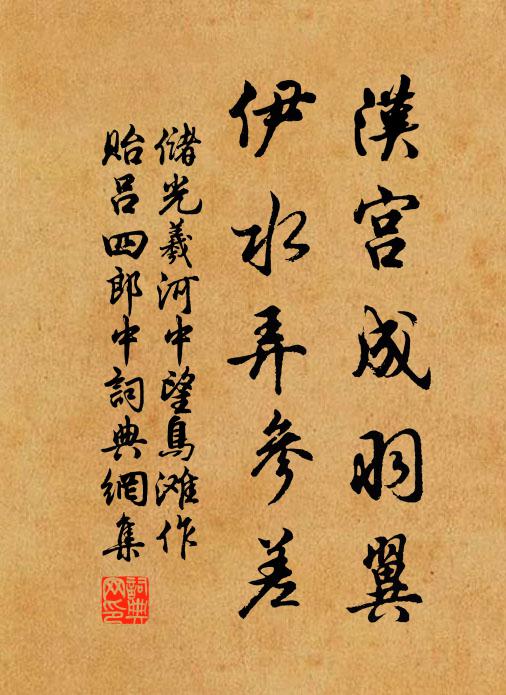 漢宮成羽翼
伊水弄參差
儲光羲河中望鳥滩作
貽呂四郎中詞典網集
詞典網印